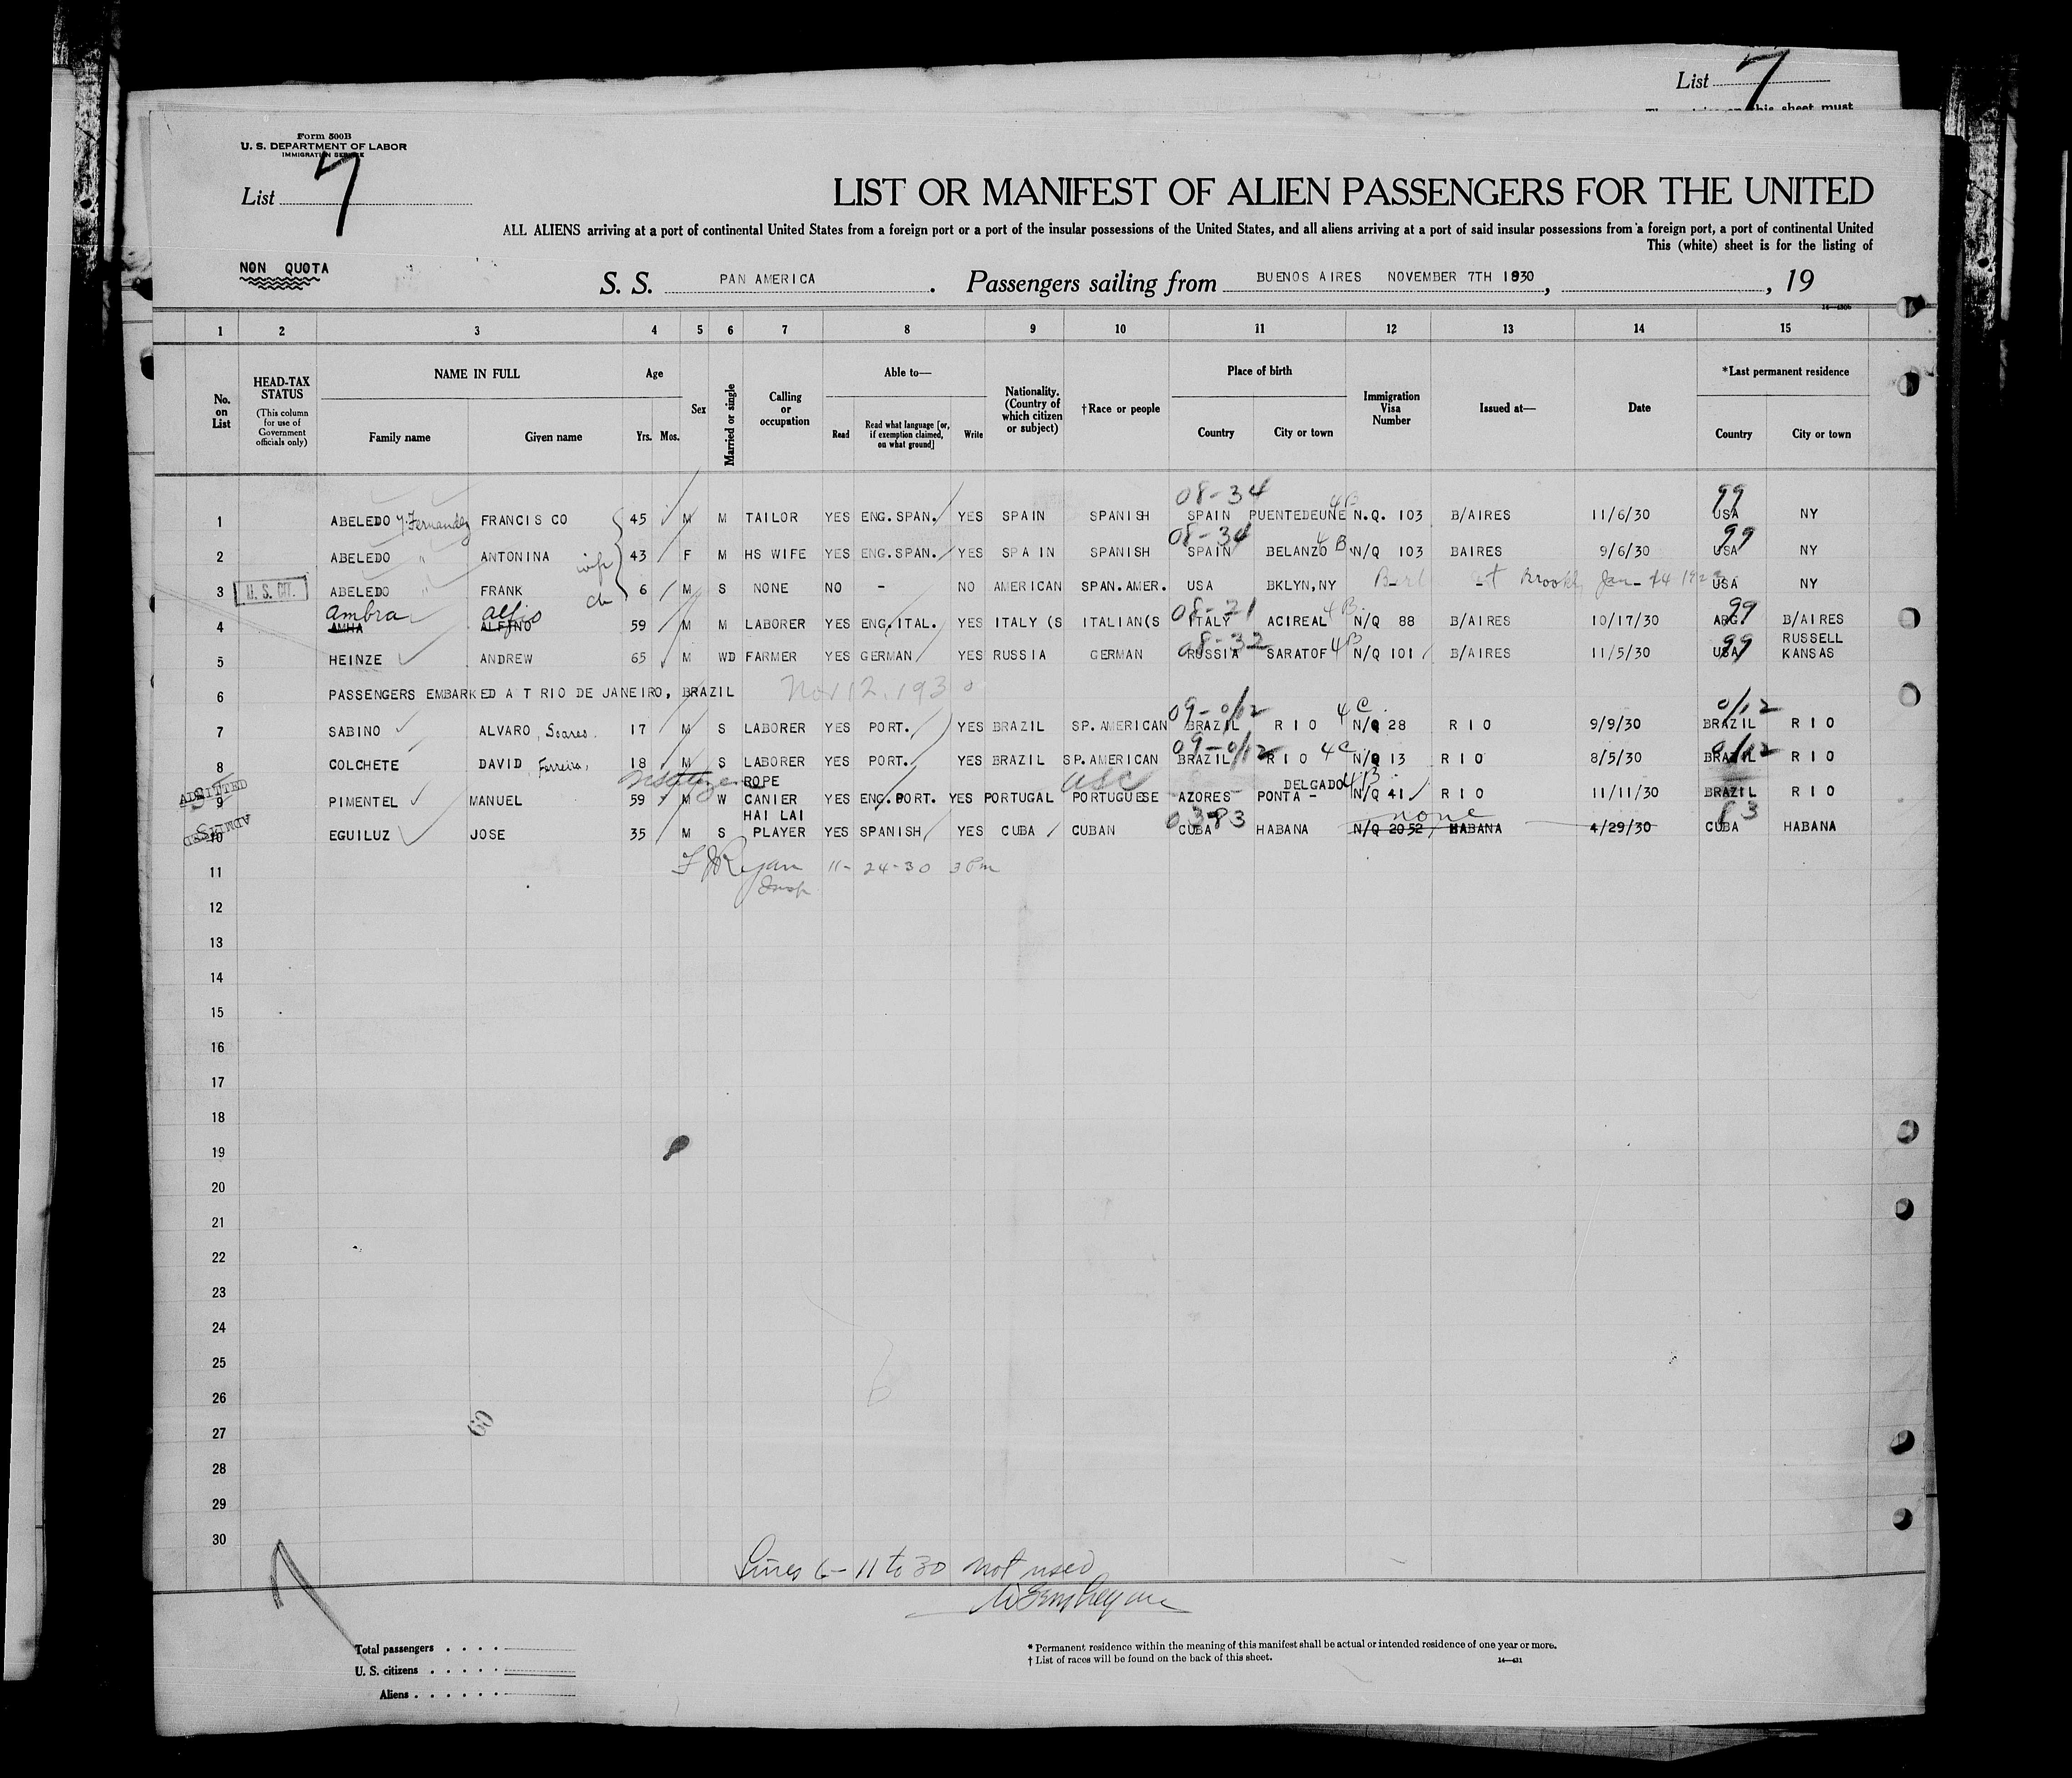 List 7
this sheet must
Form 500B
U. S. DEPARTMENT OF LABOR
IMMIGRATION SERVICE
List 7
LIST OR MANIFEST OF ALIEN PASSENGERS FOR THE UNITED
ALL ALIENS arriving at a port of continental United States from a foreign port or a port of the insular possessions of the United States, and all aliens arriving at a port of said insular possessions from a foreign port, a port of continental United
This (white) sheet is for the listing of
NON QUOTA
S. S. PAN AMERICA . Passengers sailing from BUENOS AIRES NOVEMBER 7TH 1930 , , 19
1 2 3 4 5 6 7 8 9 10 11 12 13 14 15
No. on List
HEAD-TAX STATUS (This column for use of Government officials only)
NAME IN FULL
Family name Given name
Age
Yrs. Mos.
Sex
Married or single
Calling or occupation
Able to—
Read
Read what language [or, if exemption claimed, on what ground]
Write
Nationality. (Country of which citizen or subject)
†Race or people
Place of birth
Country City or town
Immigration Visa Number
Issued at—
Date
*Last permanent residence
Country City or town
08-34 4B 99
1 ABELEDO y Fernandez FRANCIS CO 45 M M TAILOR YES ENG.SPAN. YES SPAIN SPANISH SPAIN PUENTEDEUNE N.Q. 103 B/AIRES 11/6/30 USA NY
08-34 4B 99
2 ABELEDO " ANTONINA wife 43 F M HS WIFE YES ENG.SPAN. YES SPAIN SPANISH SPAIN BELANZO N/Q 103 BAIRES 9/6/30 USA NY
3 U. S. CIT. ABELEDO " FRANK ch 6 M S NONE NO - NO AMERICAN SPAN.AMER. USA BKLYN,NY at Brookl Jan- 14 USA NY
ambra alfio 08-21 4B 99
4 AMHA ALFINO 59 M M LABORER YES ENG.ITAL. YES ITALY (S ITALIAN(S ITALY ACIREAL N/Q 88 B/AIRES 10/17/30 ARG B/AIRES
08-32 4B 99
5 HEINZE ANDREW 65 M WD FARMER YES GERMAN YES RUSSIA GERMAN RUSSIA SARATOF N/Q 101 B/AIRES 11/5/30 USA RUSSELL KANSAS
6 PASSENGERS EMBARKED A T RIO DE JANEIRO, BRAZIL Nov 12, 1930
09-0/12 4C 0/12
7 SABINO ALVARO, Soares. 17 M S LABORER YES PORT. YES BRAZIL SP.AMERICAN BRAZIL R I O N/Q 28 R I O 9/9/30 BRAZIL R I O
09-0/12 4C 0/12
8 COLCHETE DAVID, Ferreira, 18 M S LABORER YES PORT. YES BRAZIL SP.AMERICAN BRAZIL R I O N/Q 13 R I O 8/5/30 BRAZIL R I O
ADMITTED USC 4B
9 PIMENTEL MANUEL 59 M W ROPE CANIER YES ENG.PORT. YES PORTUGAL PORTUGUESE AZORES PONTA - DELGADO N/Q 41 R I O 11/11/30 BRAZIL R I O
ADMITTED 03-83 none 83
10 EGUILUZ JOSE 35 M S HAI LAI PLAYER YES SPANISH YES CUBA CUBAN CUBA HABANA N/Q 2052 HABANA 4/29/30 CUBA HABANA
11 F J Ryan 11-24-30 3 Pm
Insp
12
13
14
15
16
17
18
19
20
21
22
23
24
25
26
27
60
28
29
30
Lines 6-11 to 30 not used
Total passengers
U. S. citizens
Aliens
* Permanent residence within the meaning of this manifest shall be actual or intended residence of one year or more.
† List of races will be found on the back of this sheet.
14—431